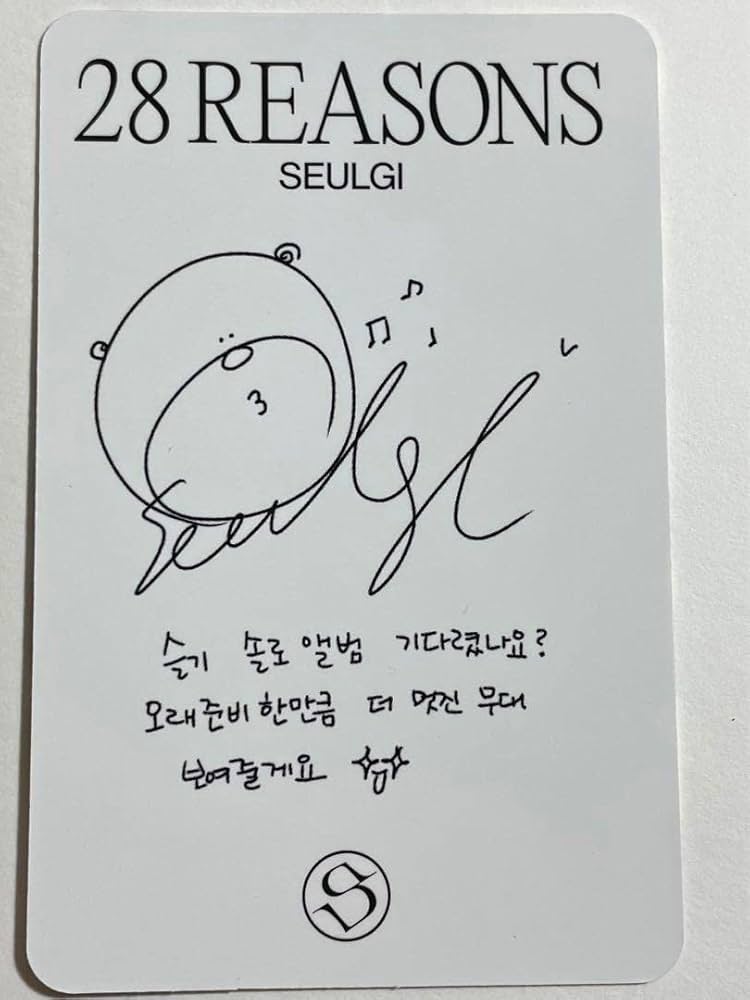 28 REASONS
SEULGI
Seulgi
슬기 솔로 앨범 기다렸나요?
오래 준비 한만큼 더 멋진 무대
보여줄게요
S